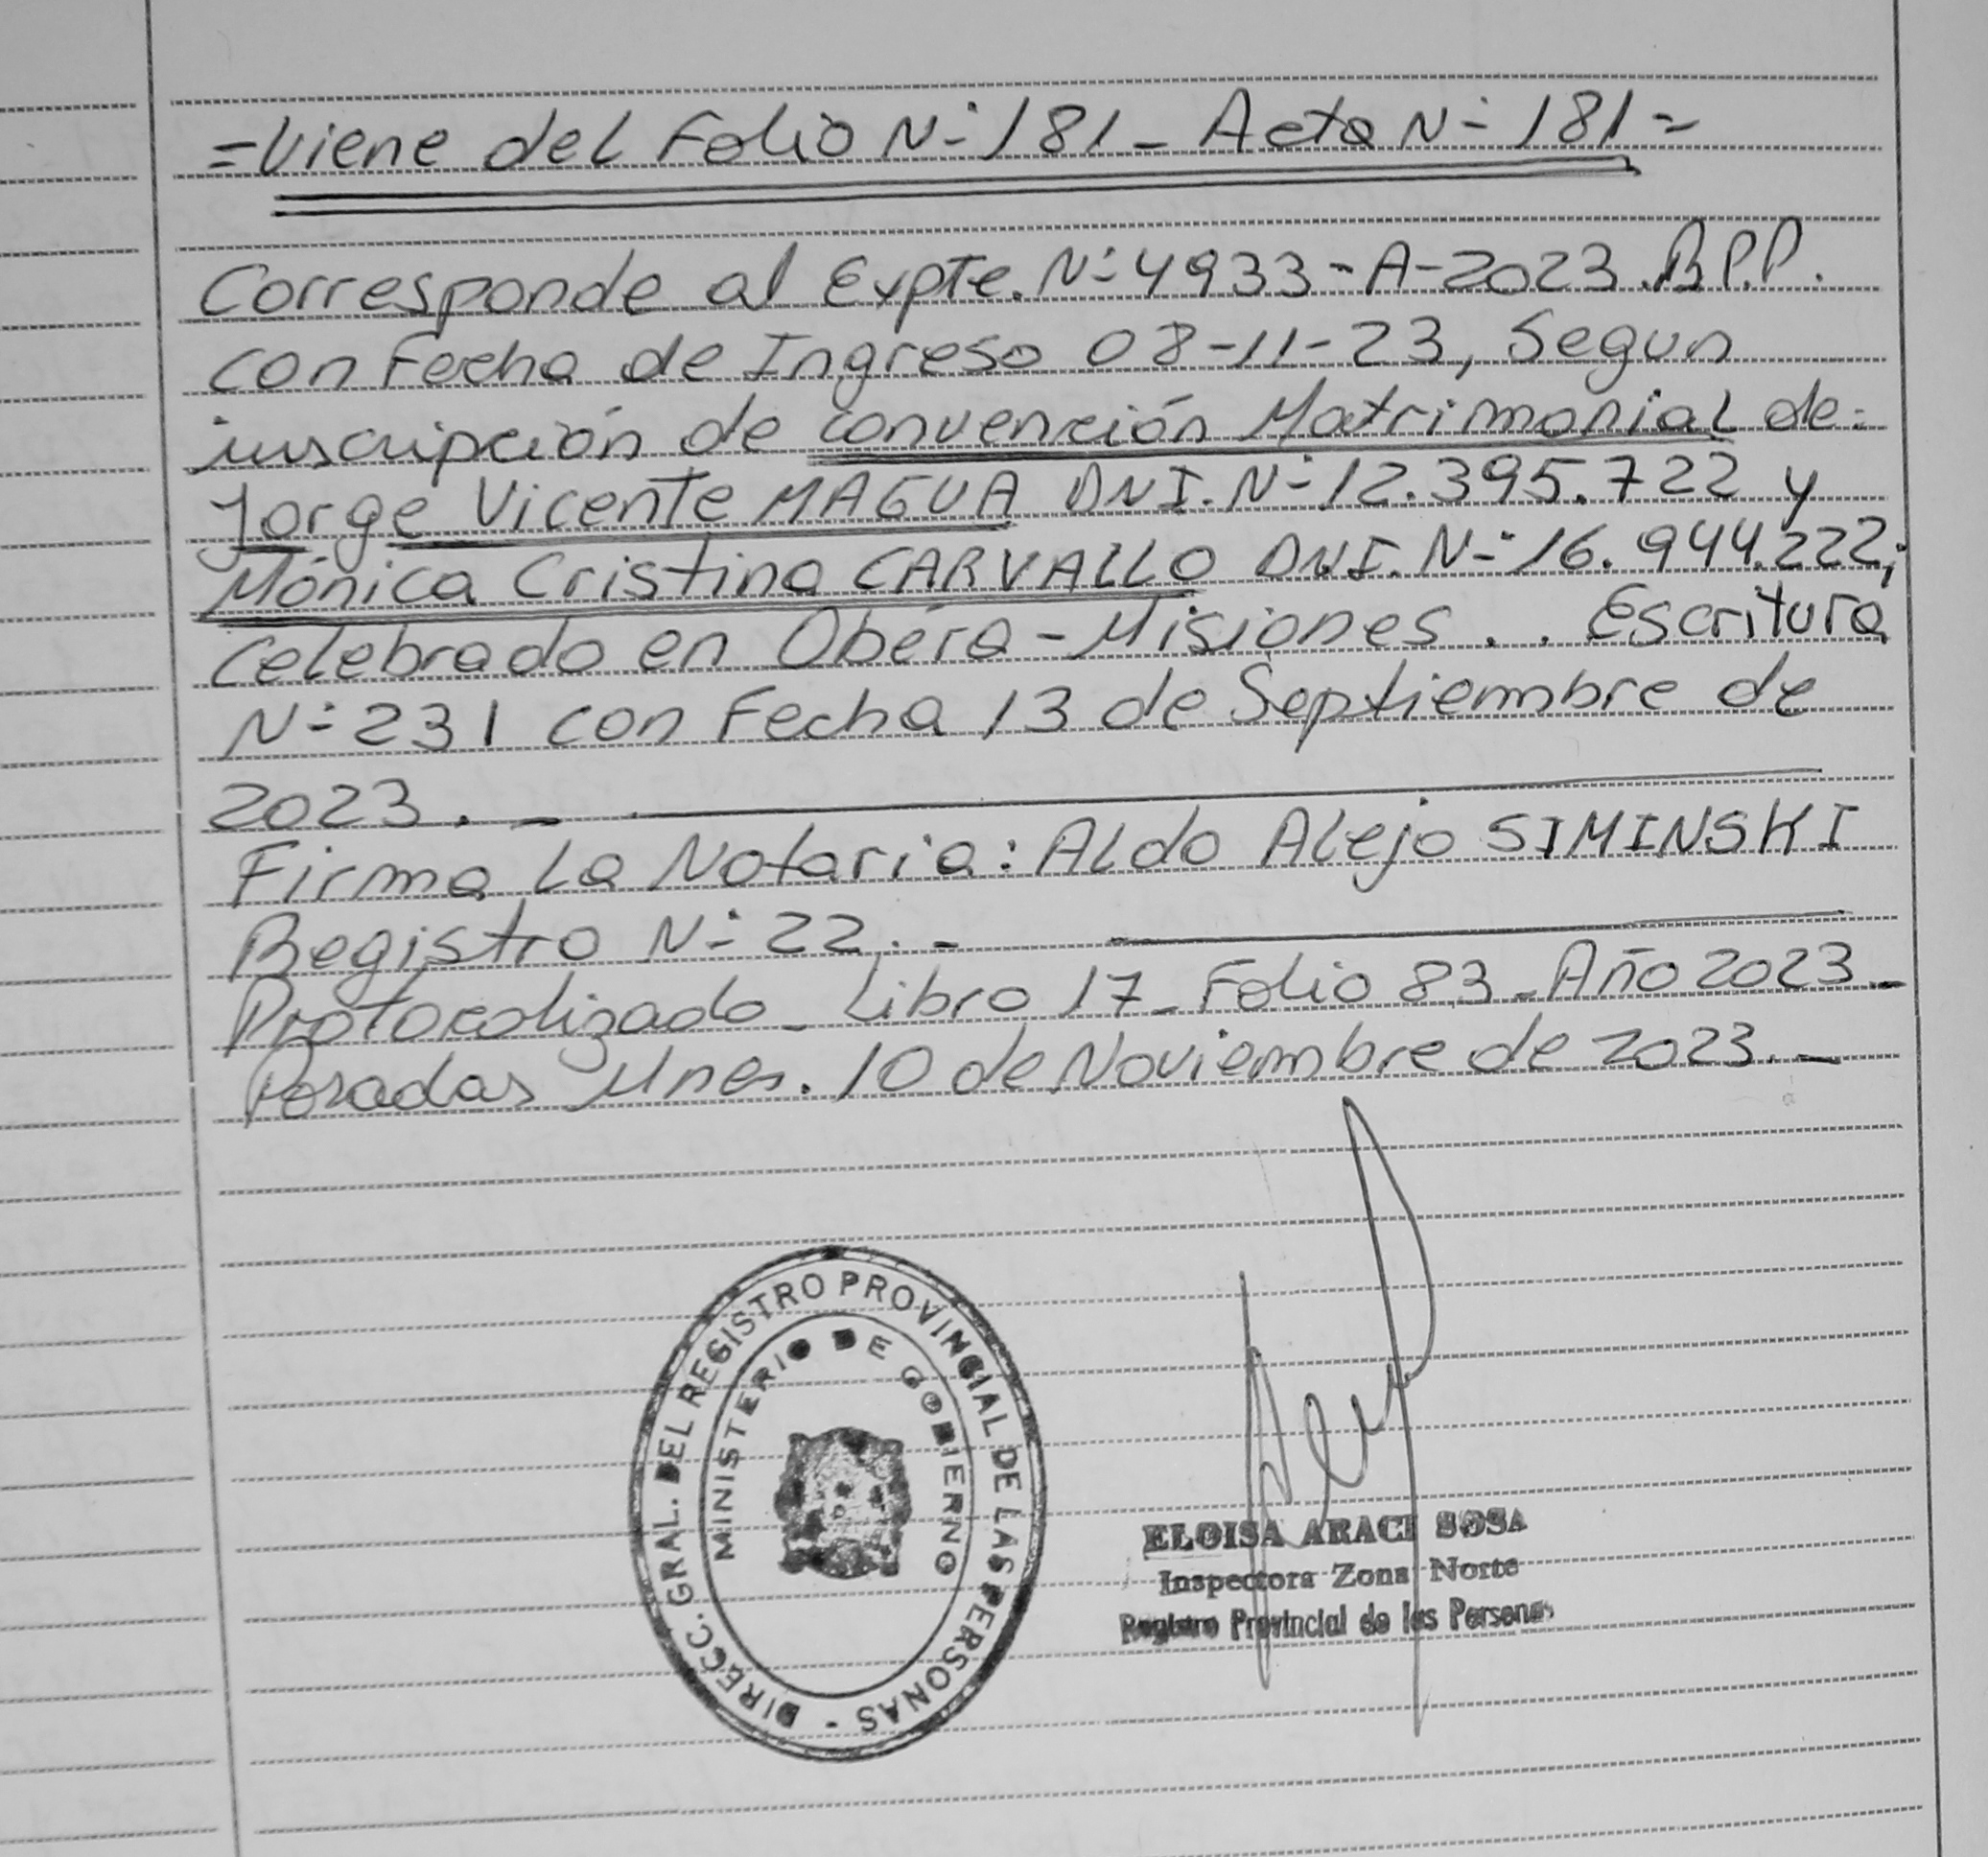 =Viene del Folio N-181- Acta N-181=
Corresponde al Expte. N-4933-A-2023.R.P.P.
con Fecha de Ingreso 08-11-23, Segun
inscripción de convención Matrimonial de:
Jorge Vicente MAGUA DNI. N-12.395.722 y
Mónica Cristina CARVALLO DNI. N-16.944.222;
celebrado en Obera-Misiones.. Escritura
N-231 con Fecha 13 de Septiembre de
2023.-
Firma La Notaria: Aldo Alejo SIMINSKI
Registro N-22.-
Protocolizado- Libro 17- Folio 83-Año 2023-
Posadas Mnes. 10 de Noviembre de 2023.-
DIRECC. GRAL. DEL REGISTRO PROVINCIAL DE LAS PERSONAS -
MINISTERIO DE GOBIERNO
ELOISA ARACI SOSA
Inspectora Zona Norte
Registro Provincial de las Personas